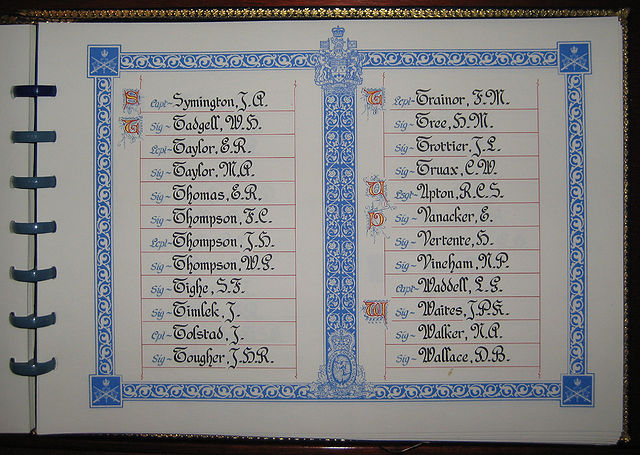 S
Capt~ Symington, J.A.
T
Sig~ Tadgell, W.H.
Lcpl~ Taylor, E.R.
Sig~ Taylor, M.A.
Sig~ Thomas, E.R.
Sig~ Thompson, F.C.
Lcpl~ Thompson, J.H.
Sig~ Thompson, W.G.
Sig~ Tighe, S.F.
Sig~ Timlek, J.
Cpl~ Tolstad, J.
Sig~ Tougher, J.H.R.
T
Lcpl~ Trainor, F.M.
Sig~ Tree, H.M.
Sig~ Trottier, J.L.
Sig~ Truax, C.W.
U
Lsgt~ Upton, R.C.S.
V
Sig~ Vanacker, E.
Sig~ Vertente, H.
Sig~ Vineham, N.P.
Capt~ Waddell, L.G.
W
Sig~ Waires, J.P.K.
Sig~ Walker, N.A.
Sig~ Wallace, D.B.